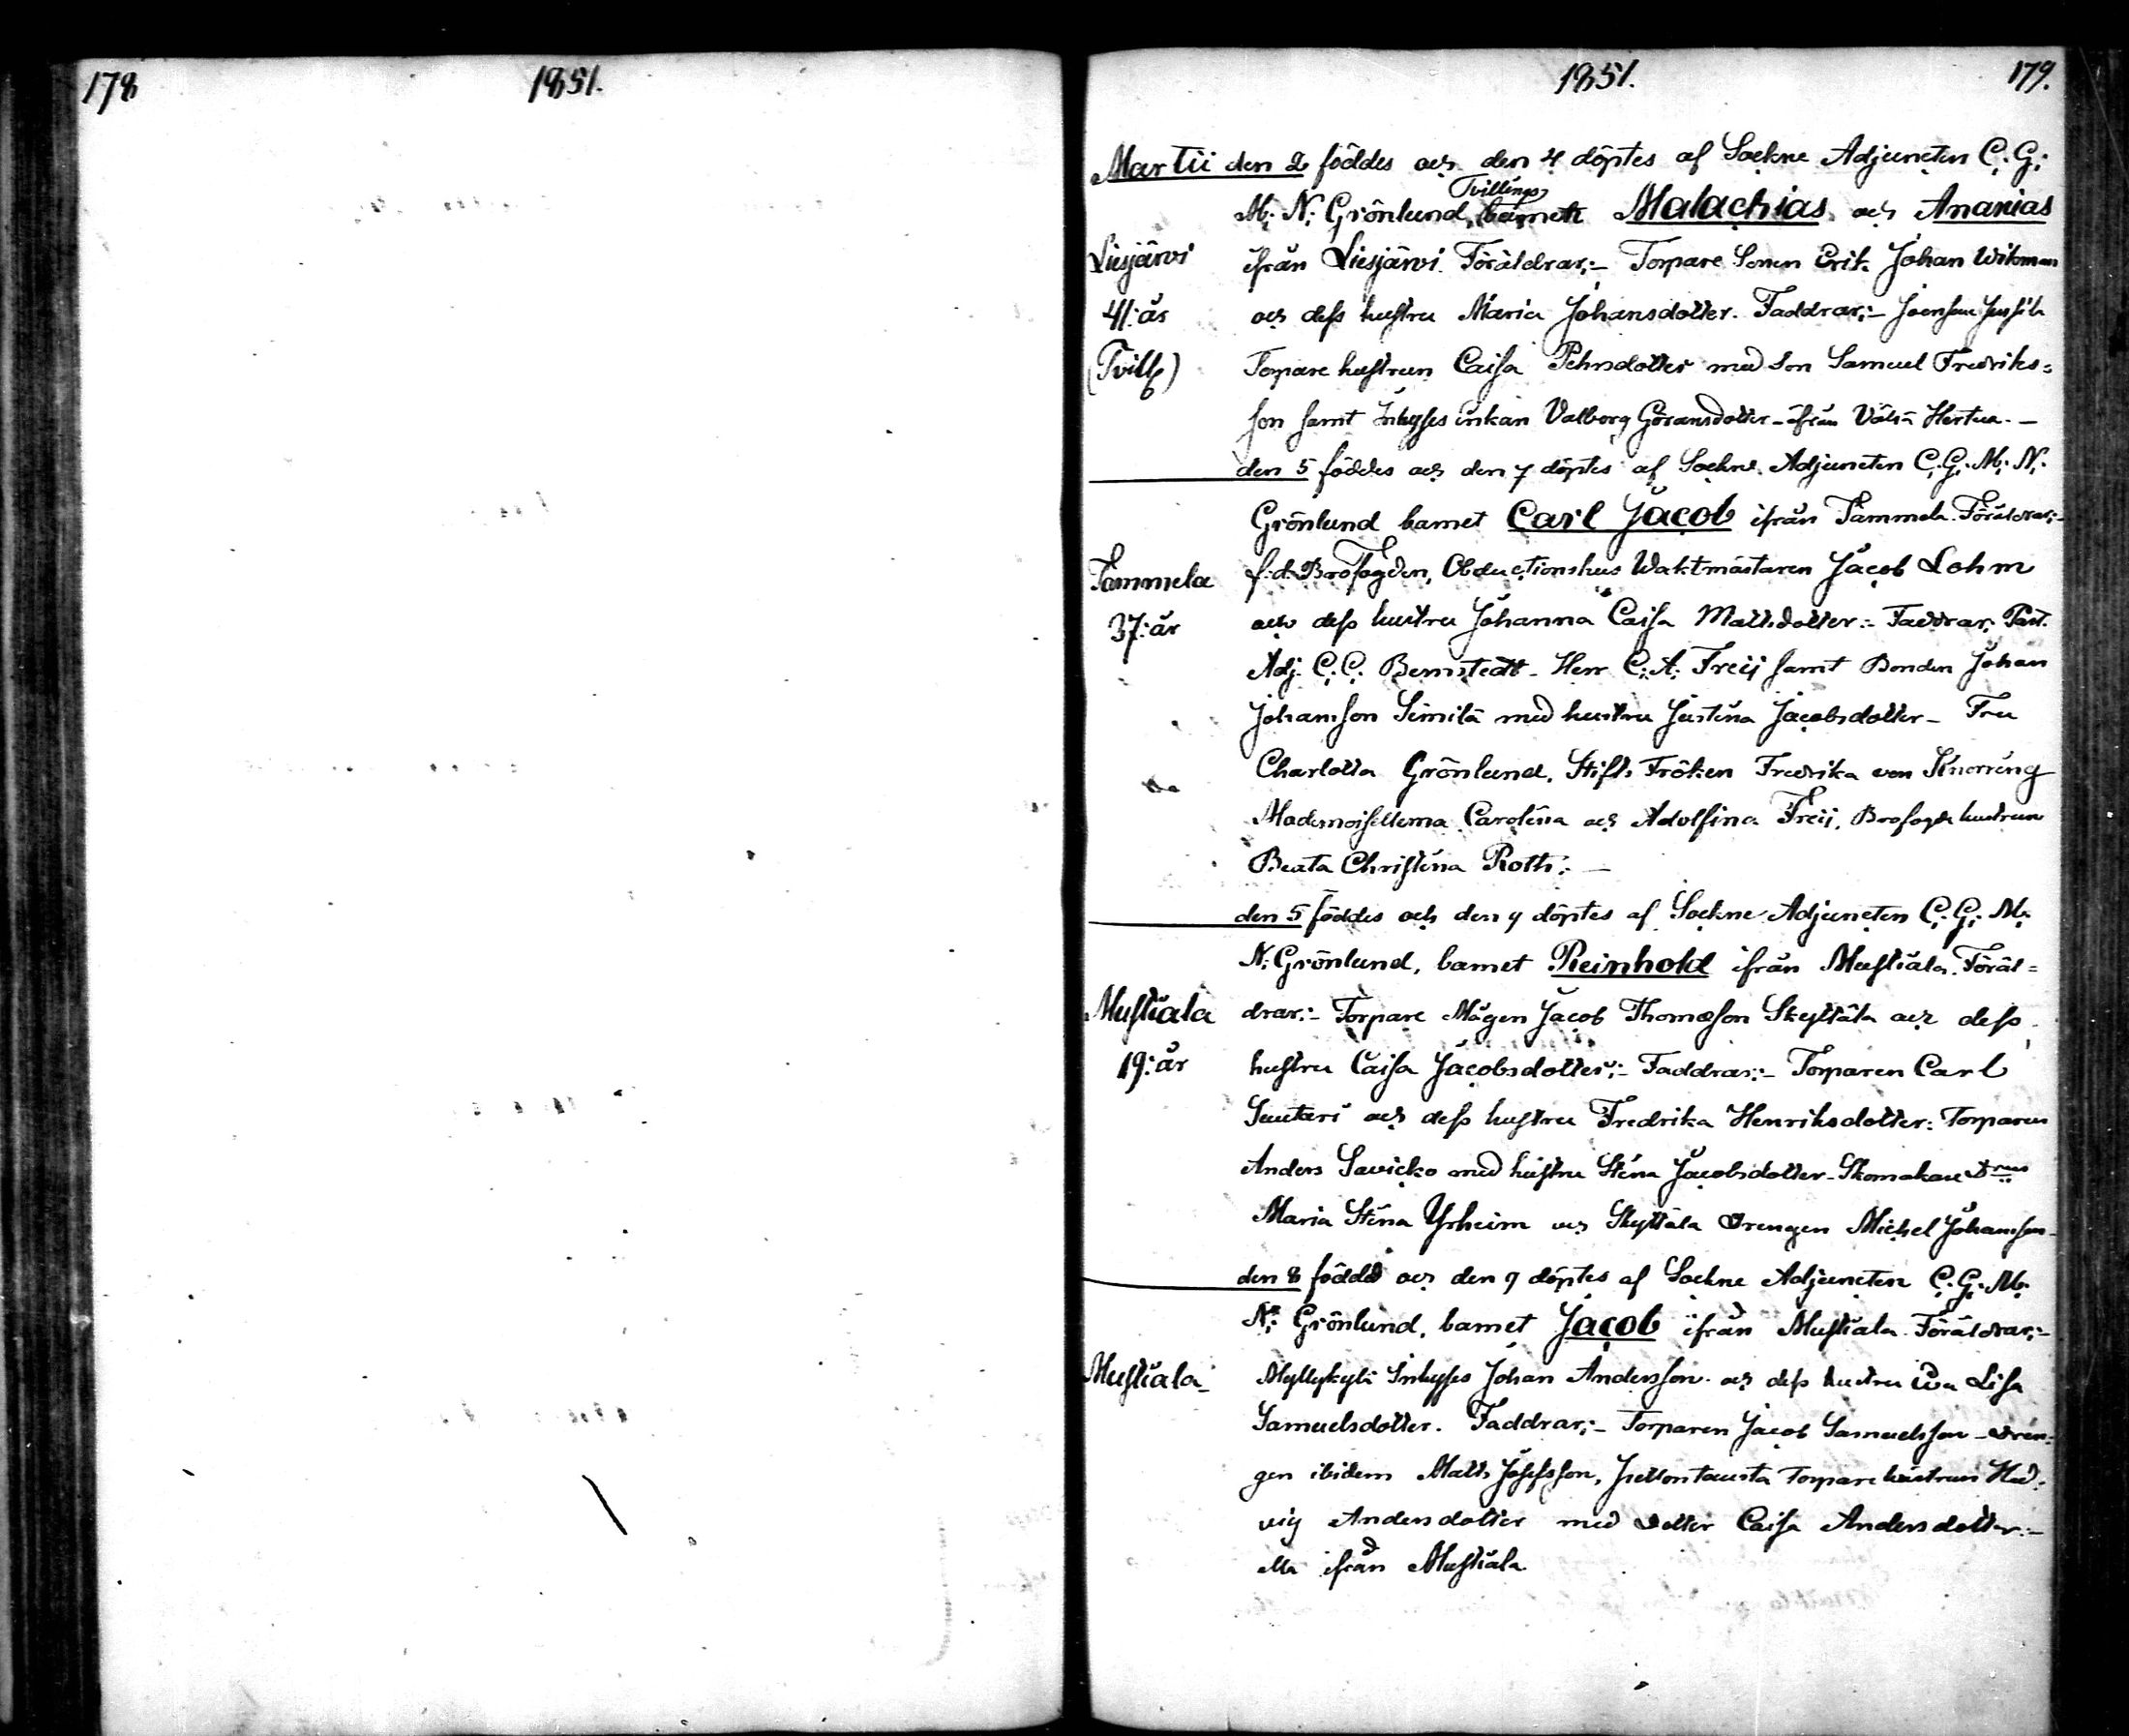 178
1851.
1851.
179.
Martii den 2 föddes och den 4 döptes af Sockne Adjuncten C: G:
M: N: Grönlund, Tvillings barnen Malachias och Ananias
Liesjärvi
ifrån Liesjärvi. Föräldrar:- Torpare Sonen Erik Johan Wikman
41: år
och dess hustru Maria Johansdotter. Faddrar:-
(Tvill)
Torpare hustrun Caisa Pehrsdotter med Son Samuel Fredriks=
son samt Inhyses enkan Valborg Göransdotter - ifrån
den 5 föddes och den 7 döptes af Sockne Adjuncten C: G: M: N:
Grönlund barnet Carl Jacob ifrån Tammela. Föräldrar:-
Tammela
f: d: Brofogden, Obductionshus Waktmästaren Jacob Lohm
37: år
och dess hustru Johanna Caisa Mattsdotter:- Faddrar: Past.
Adj. C: C: Bernstedt - Herr C: A: Freij samt Bonden Johan
Johansson Simila med hustru Justina Jacobsdotter - Fru
Charlotta Grönlund, Stifts Fröken Fredrika von Knorring
Mademoisellerna Carolina och Adolfina Freij, Brofogde hustrun
Beata Christina Roth:-
den 5 föddes och den 9 döptes af Sockne Adjuncten C: G: M:
N: Grönlund, barnet Reinhold ifrån Mustiala. Föräl=
Mustiala
drar:- Torpare Mågen Jacob Thomasson Skyttälä och dess
19: år
hustru Caisa Jacobsdotter:- Faddrar:- Torparen Carl
Suutari och dess hustru Fredrika Henriksdotter: Torparen
Anders Savicko med hustru Stina Jacobsdotter - Skomakare
Maria Stina och Skyttälä Drengen Michel Johansson -
den 8 föddes och den 9 döptes af Sockne Adjuncten C: G: M:
N: Grönlund, barnet Jacob ifrån Mustiala. Föräldrar:-
Mustiala -
Myllykylä Inhyses Johan Andersson och dess hustru Eva Lisa
Samuelsdotter. Faddrar:- Torparen Jacob Samuelsson - Drän=
gen ibidem Matts Josefsson, Torpare hustrun Hed=
vig Andersdotter med Dotter Caisa Andersdotter:-
alla ifrån Mustiala.